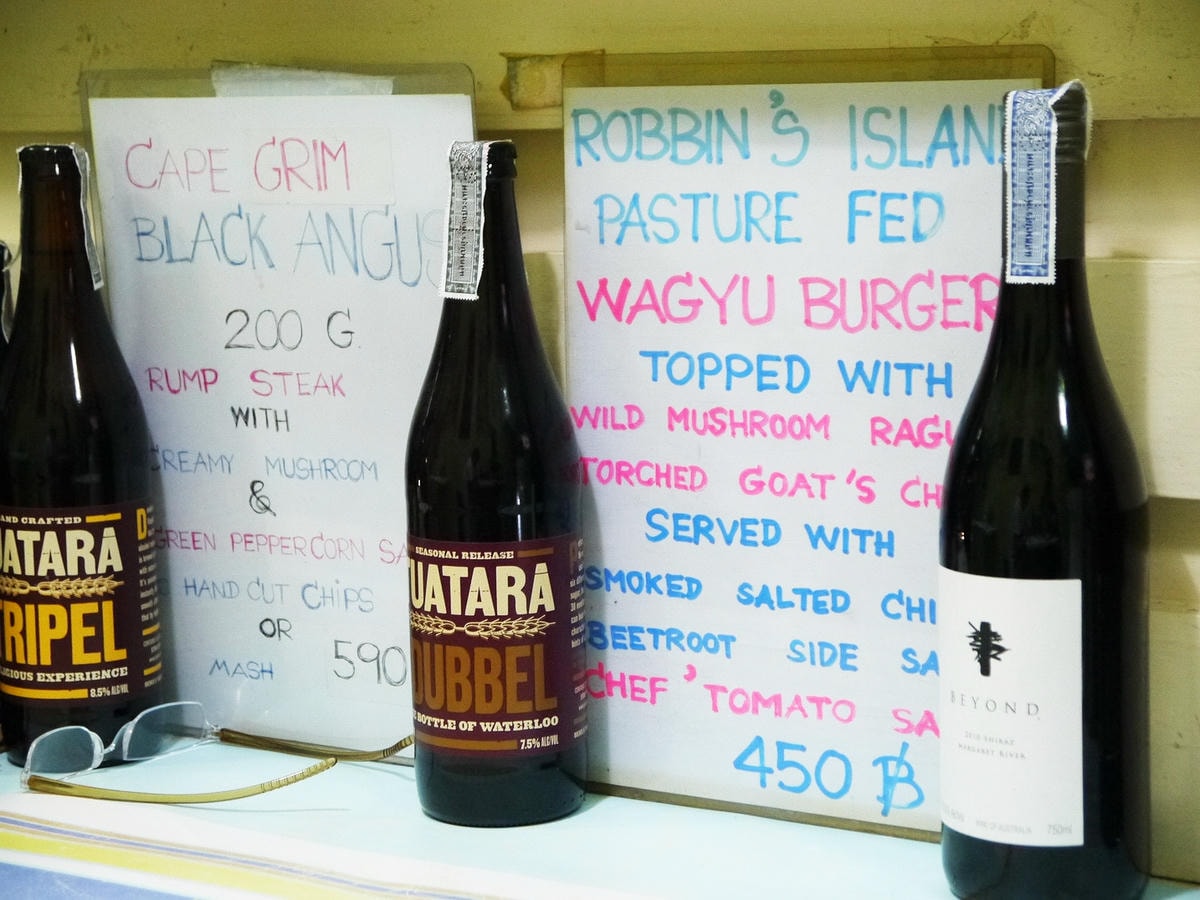 CAPE GRIM
BLACK ANGUS
200 G.
RUMP STEAK
WITH
CREAMY MUSHROOM
&
GREEN PEPPERCORN SA
HAND CUT CHIPS
OR
MASH 590
ROBBIN'S ISLAN
PASTURE FED
WAGYU BURGER
TOPPED WITH
WILD MUSHROOM RAGU
TORCHED GOAT'S CH
SERVED WITH
SMOKED SALTED CHI
BEETROOT SIDE SA
CHEF' TOMATO SA
450 ฿
AND CRAFTED
UATARA
TRIPEL
LIGIOUS EXPERIENCE
8.5% ALC/VOL
SEASONAL RELEASE
TUATARA
DUBBEL
BOTTLE OF WATERLOO
7.5% ALC/VOL
BEYOND
2010 SHIRAZ
MARGARET RIVER
WINE OF AUSTRALIA 750ml